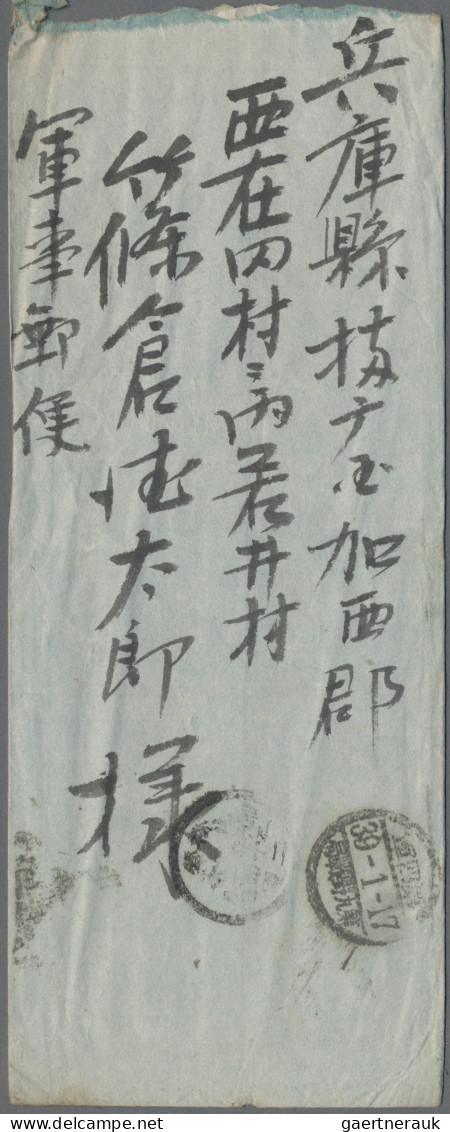 兵庫縣播广国加西郡
西在田村之内若井村
條倉徳太郎様
軍事郵便
39-1-17
gaertnerauk